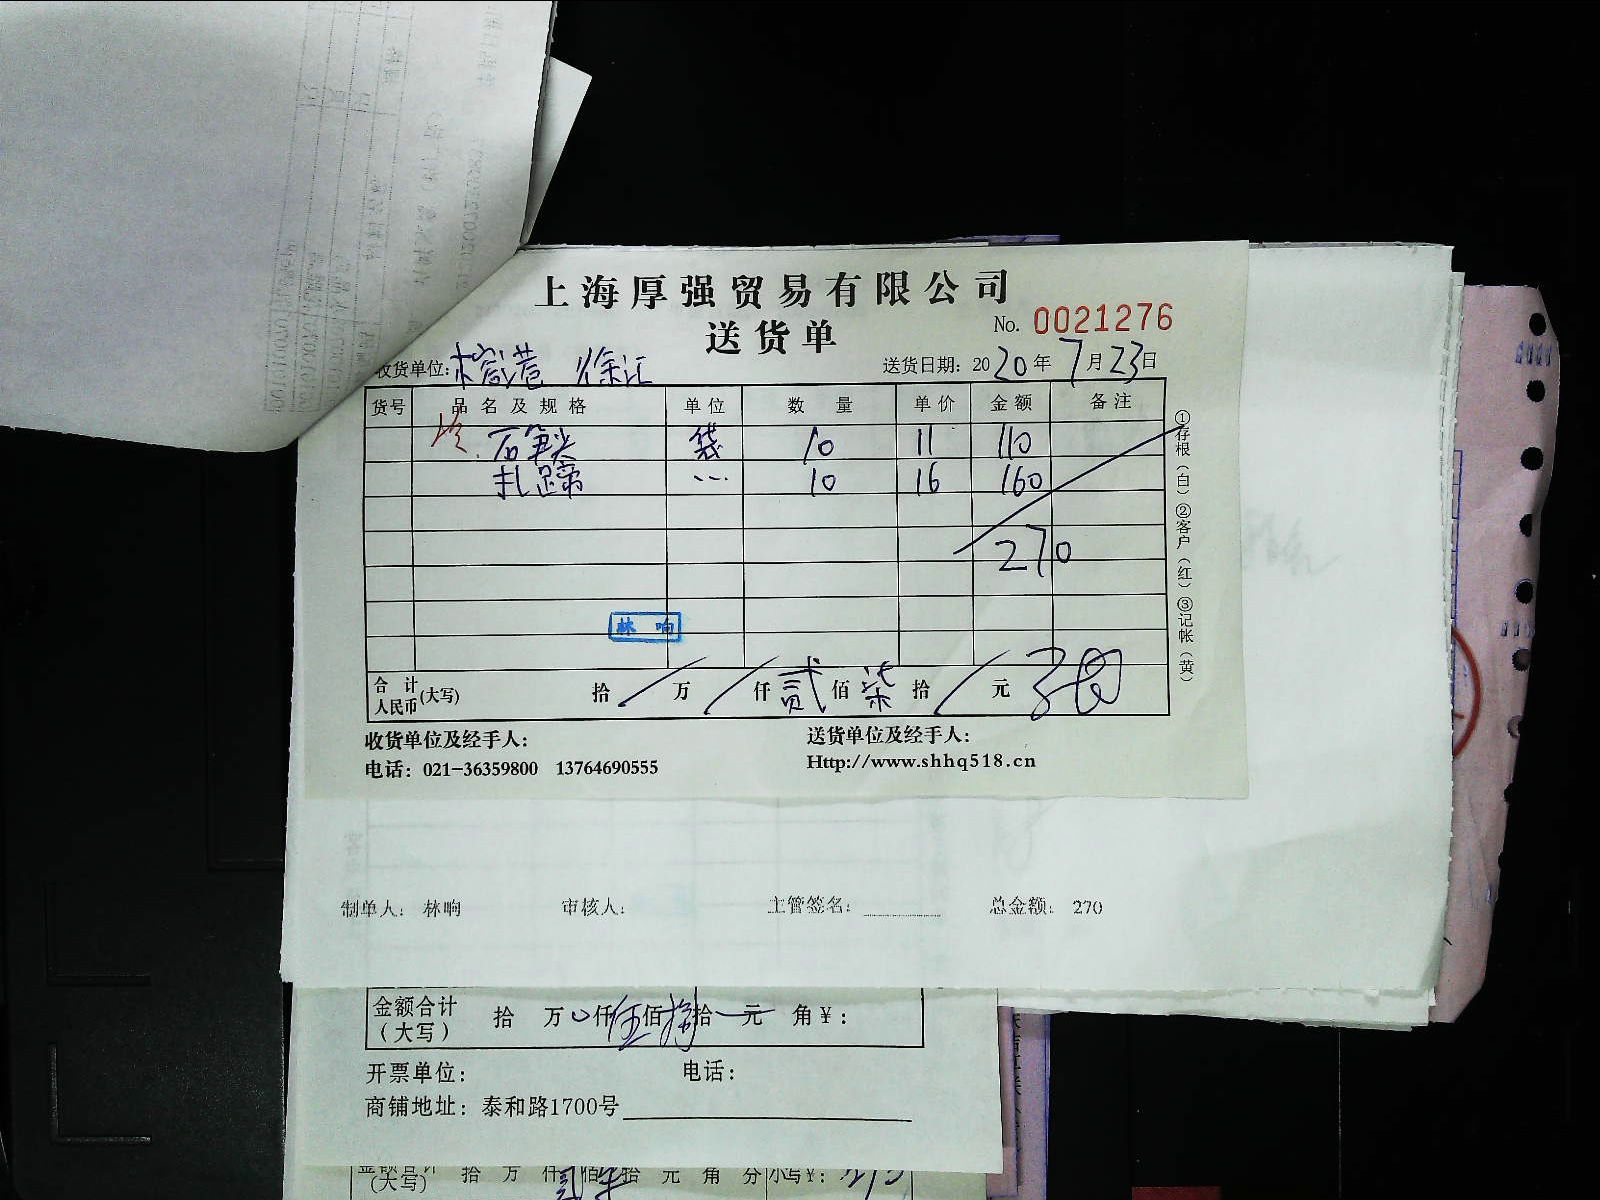 上海厚强贸易有限公司
送货单
No. 0021276
收货单位: 徐汇
送货日期: 2020年7月23日
货号 品名及规格 单位 数量 单价 金额 备注
石笋尖 袋 10 11 110
扎蹄 〃 10 16 160
270
林响
合计人民币(大写) 拾/万/仟贰佰柒拾/元
①存根(白)②客户(红)③记帐(黄)
收货单位及经手人:
送货单位及经手人:
电话: 021-36359800 13764690555
Http://www.shhq518.cn
制单人: 林响 审核人: 主管签名: 总金额: 270
金额合计(大写) 拾 万 仟伍佰捌拾 元 角¥:
开票单位: 电话:
商铺地址: 泰和路1700号
金额合计(大写) 拾 万 仟 佰 拾 元 角 分 小写¥: